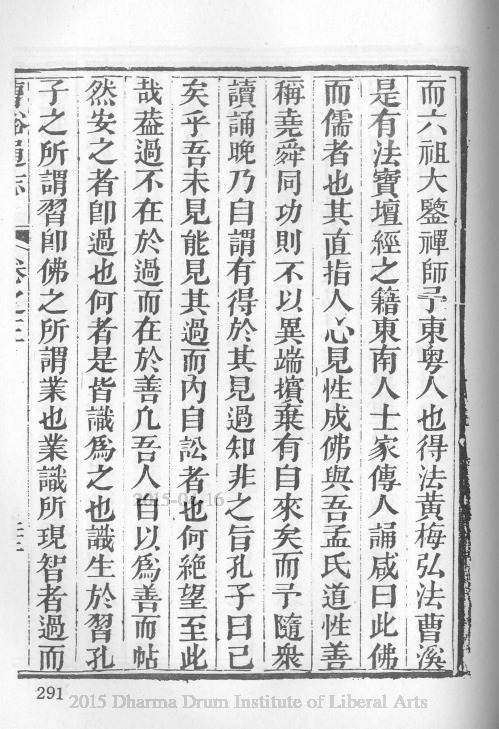 而六祖大鑒禪師予東粵人也得法黃梅弘法曹溪
是有法寶壇經之籍東南人士家傳人誦咸曰此佛
而儒者也其直指人心見性成佛與吾孟氏道性善
稱堯舜同功則不以異端擯棄有自來矣而予隨衆
讀誦晚乃自謂有得於其見過知非之旨孔子曰已
矣乎吾未見能見其過而內自訟者也何絕望至此
哉葢過不在於過而在於善凢吾人自以爲善而帖
然安之者卽過也何者是皆識爲之也識生於習孔
子之所謂習卽佛之所謂業也業識所現智者過而
曹谿通志
卷之三
291
2015-04-16
2015 Dharma Drum Institute of Liberal Arts